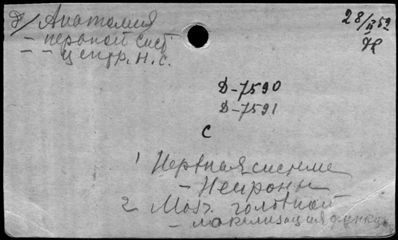 Д/ Анатомия
28/II 52
- нервной сист.
- " - центр. н. с.
Д-7590
Д-7591
С
1 Нервная система
- Нейроны
2 Мозг головной
- локализация функц.